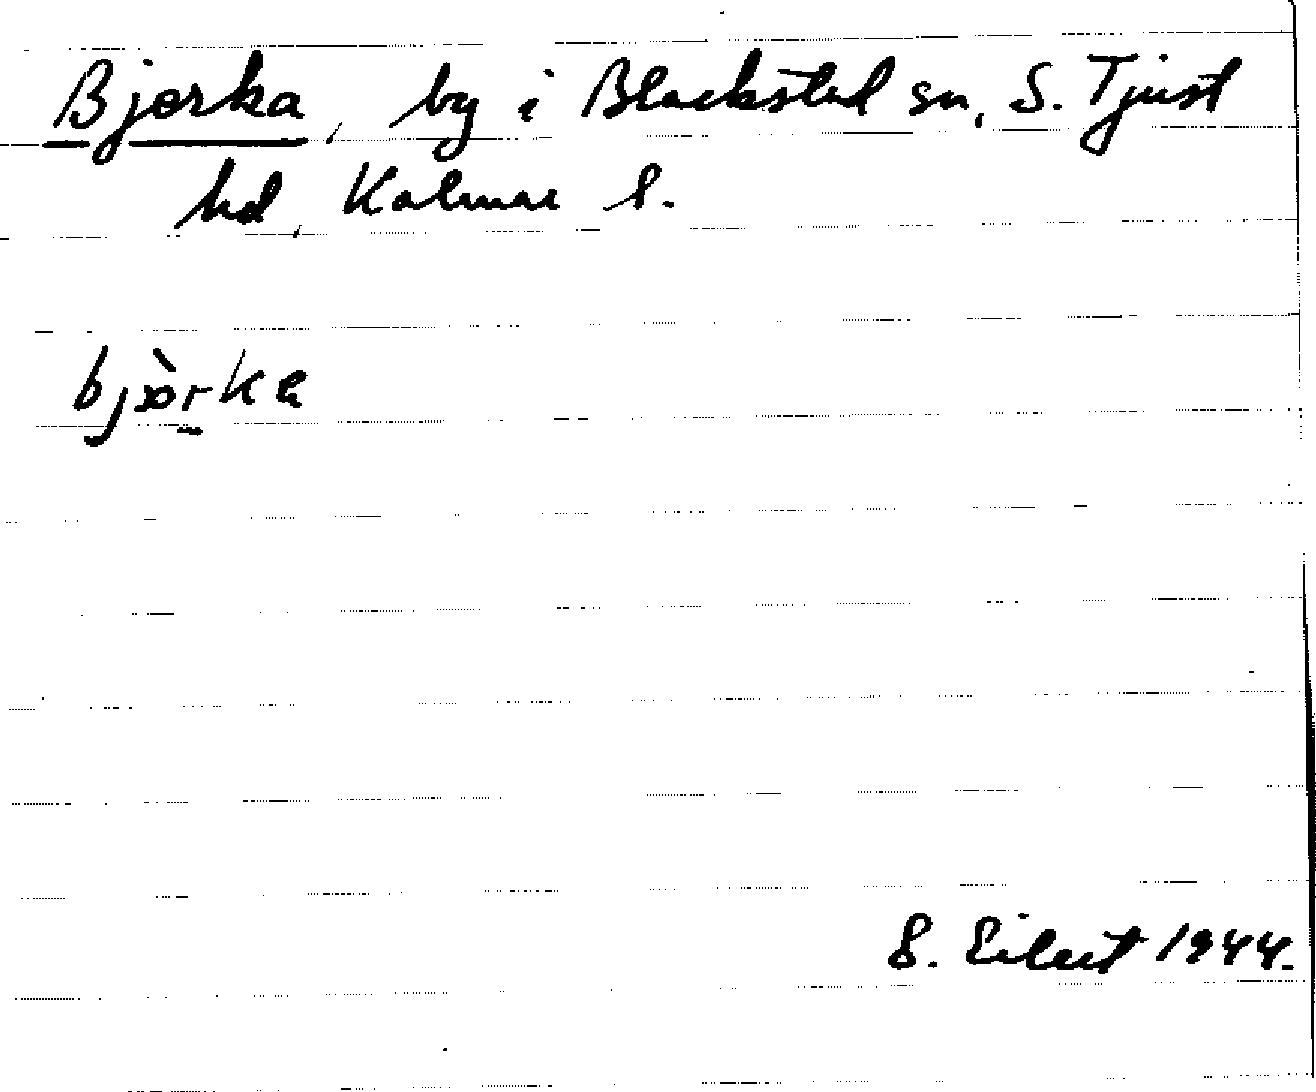 Bjorka, by i Blackstad sn, S. Tjust
hd, Kalmar l.
bjòrka
S. Eilert 1944.